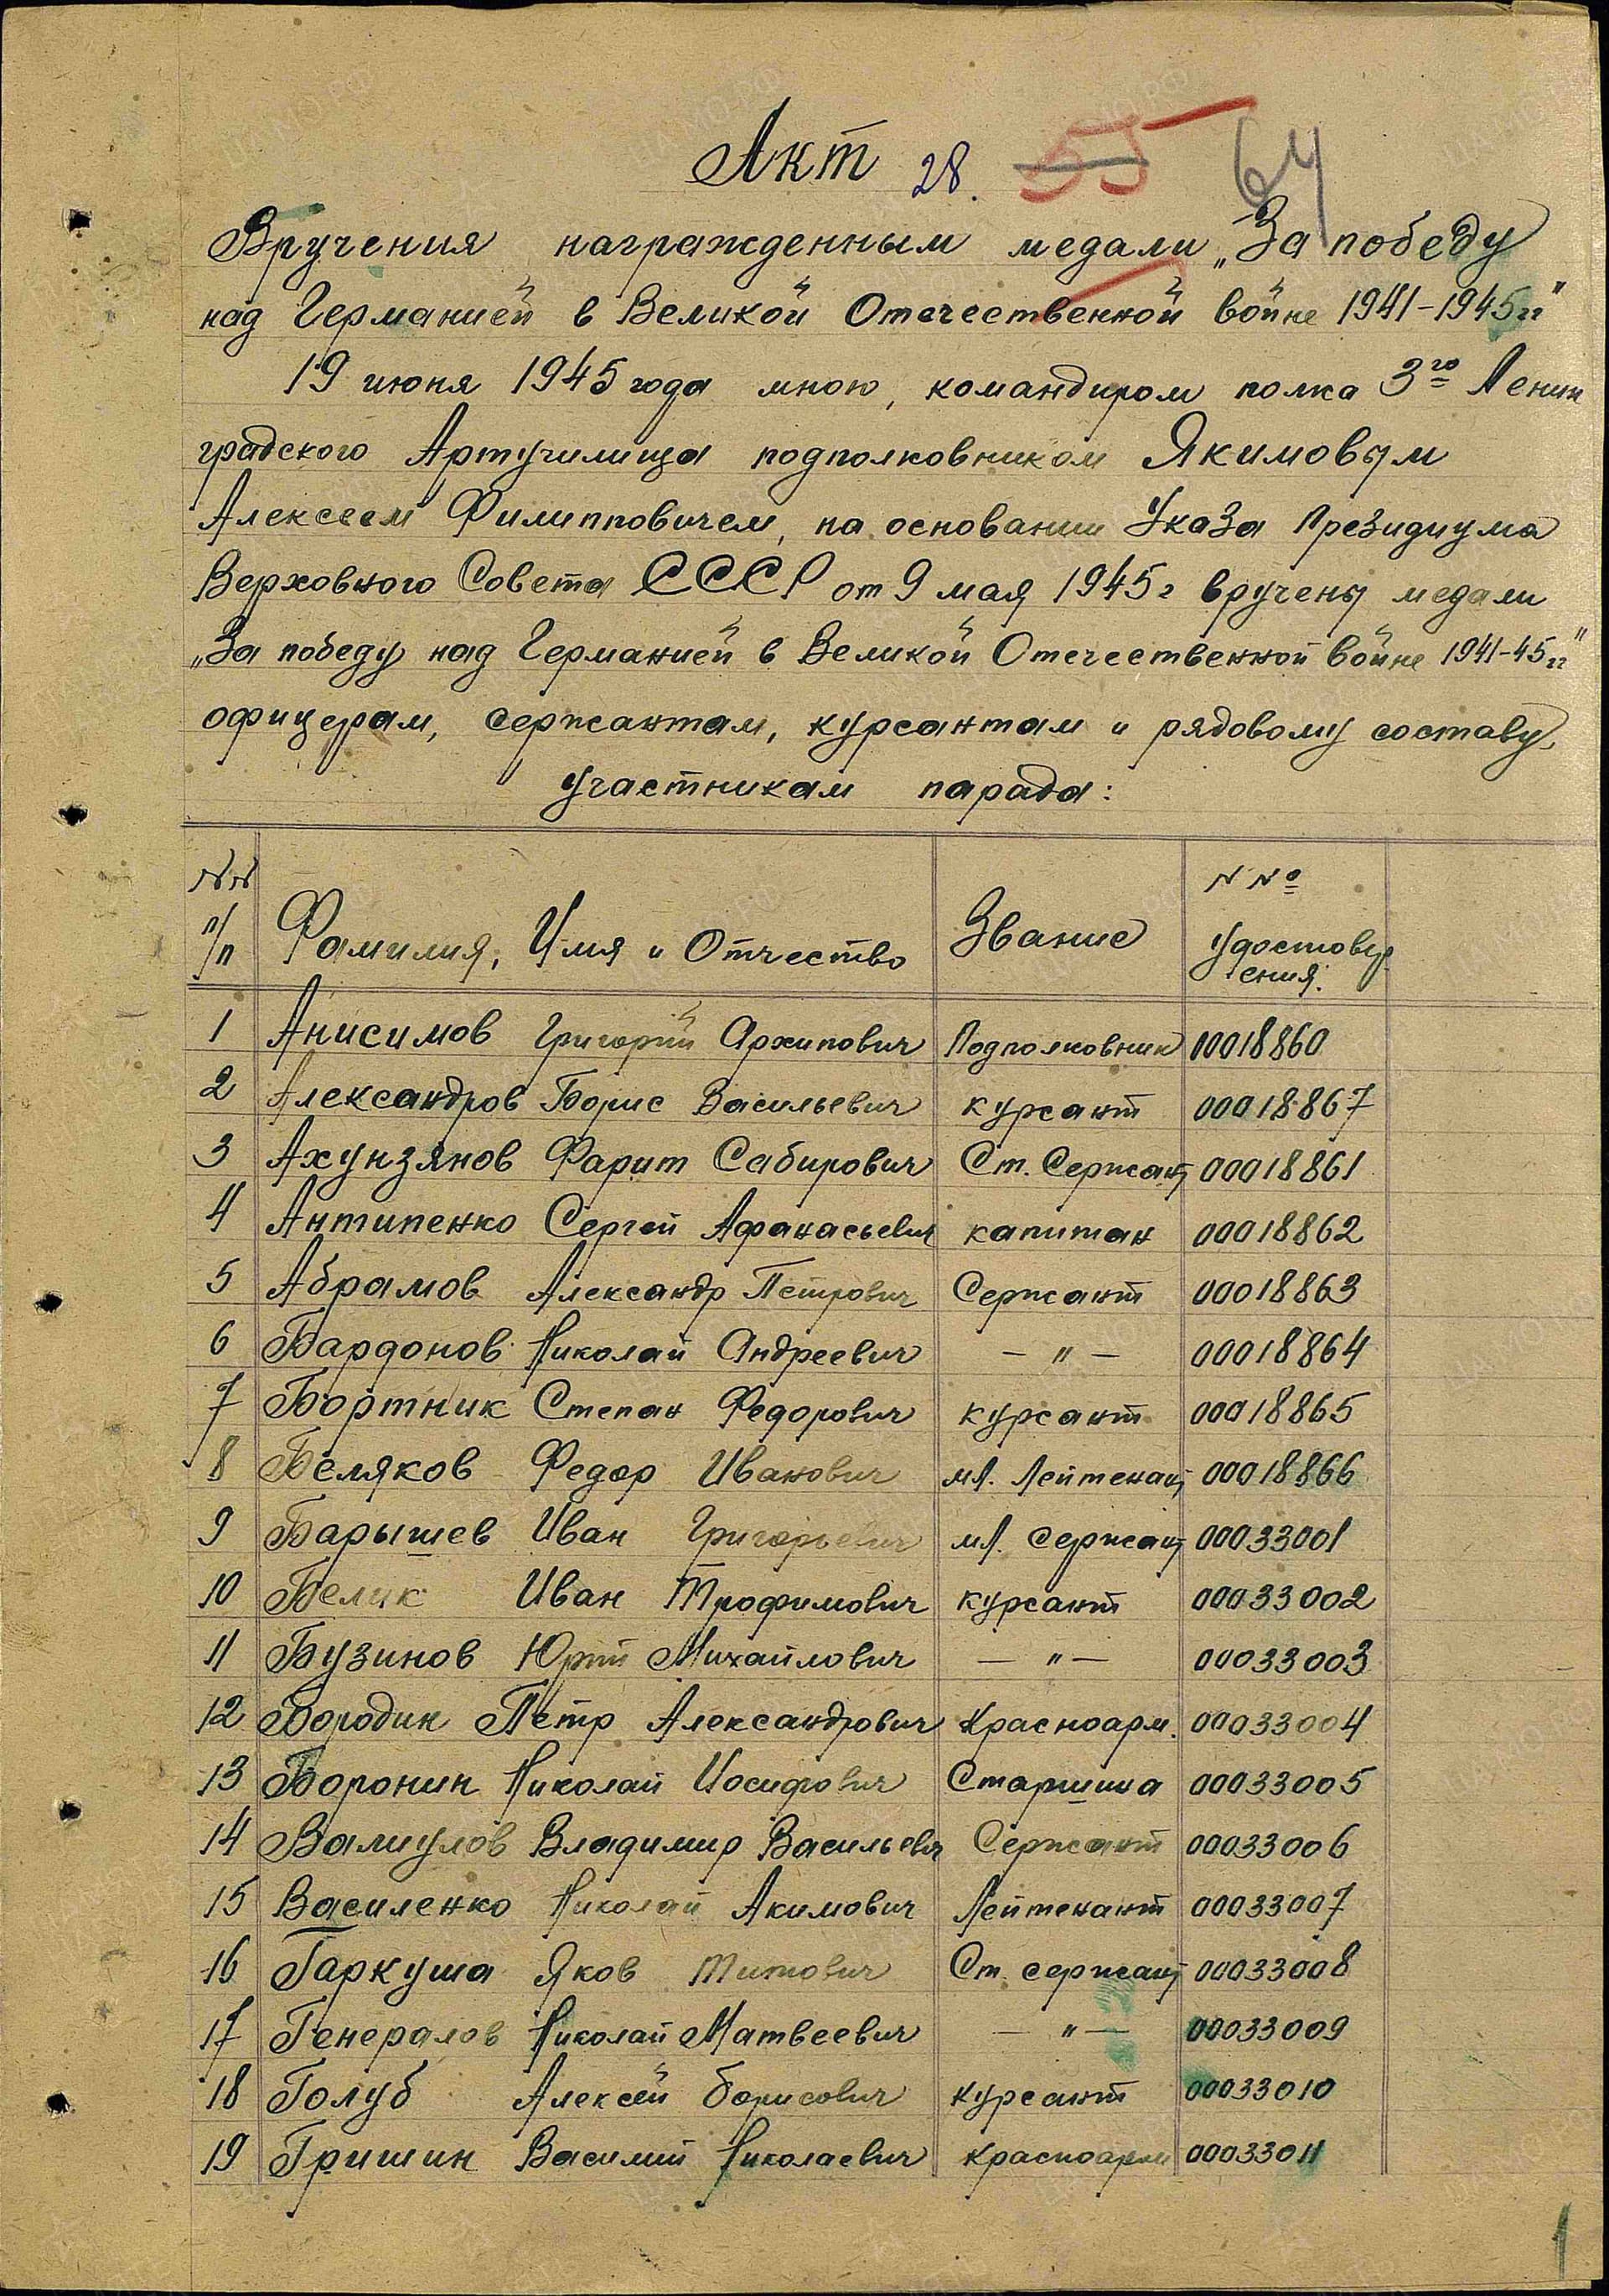 Акт 28. 55 64
Вручения награжденным медали „За победу
над Германией в Великой Отечественной войне 1941-1945гг"
19 июня 1945 года мною, командиром полка 3го Ленин
градского Артучилища подполковником Якимовым
Алексеем Филипповичем, на основании Указа Президиума
Верховного Совета СССР от 9 мая 1945г вручены медали
„За победу над Германией в Великой Отечественной войне 1941-45гг"
офицерам, сержантам, курсантам и рядовому составу,
участникам парада:
NN п/п Фамилия, Имя и Отчество Звание N№ Удостовер
ения.
1 Анисимов Григорий Архипович Подполковник 00018860
2 Александров Борис Васильевич курсант 00018867
3 Ахунзянов Фарит Сабирович Ст. Сержант 00018861
4 Антипенко Сергей Афанасьевич капитан 00018862
5 Абрамов Александр Петрович Сержант 00018863
6 Бардонов Николай Андреевич — " — 00018864
7 Бортник Степан Федорович курсант 00018865
8 Беляков Федор Иванович мл. Лейтенант 00018866
9 Барышев Иван Григорьевич мл. сержант 00033001
10 Белик Иван Трофимович курсант 00033002
11 Бузинов Юрий Михайлович — " — 00033003
12 Бородин Петр Александрович Красноарм. 00033004
13 Боронин Николай Иосифович Старшина 00033005
14 Валиулов Владимир Васильевич Сержант 00033006
15 Василенко Николай Акимович Лейтенант 00033007
16 Гаркуша Яков Титович Ст. сержант 00033008
17 Генералов Николай Матвеевич — " — 00033009
18 Голуб Алексей Борисович курсант 00033010
19 Гришин Василий Николаевич красноарм 00033011
1